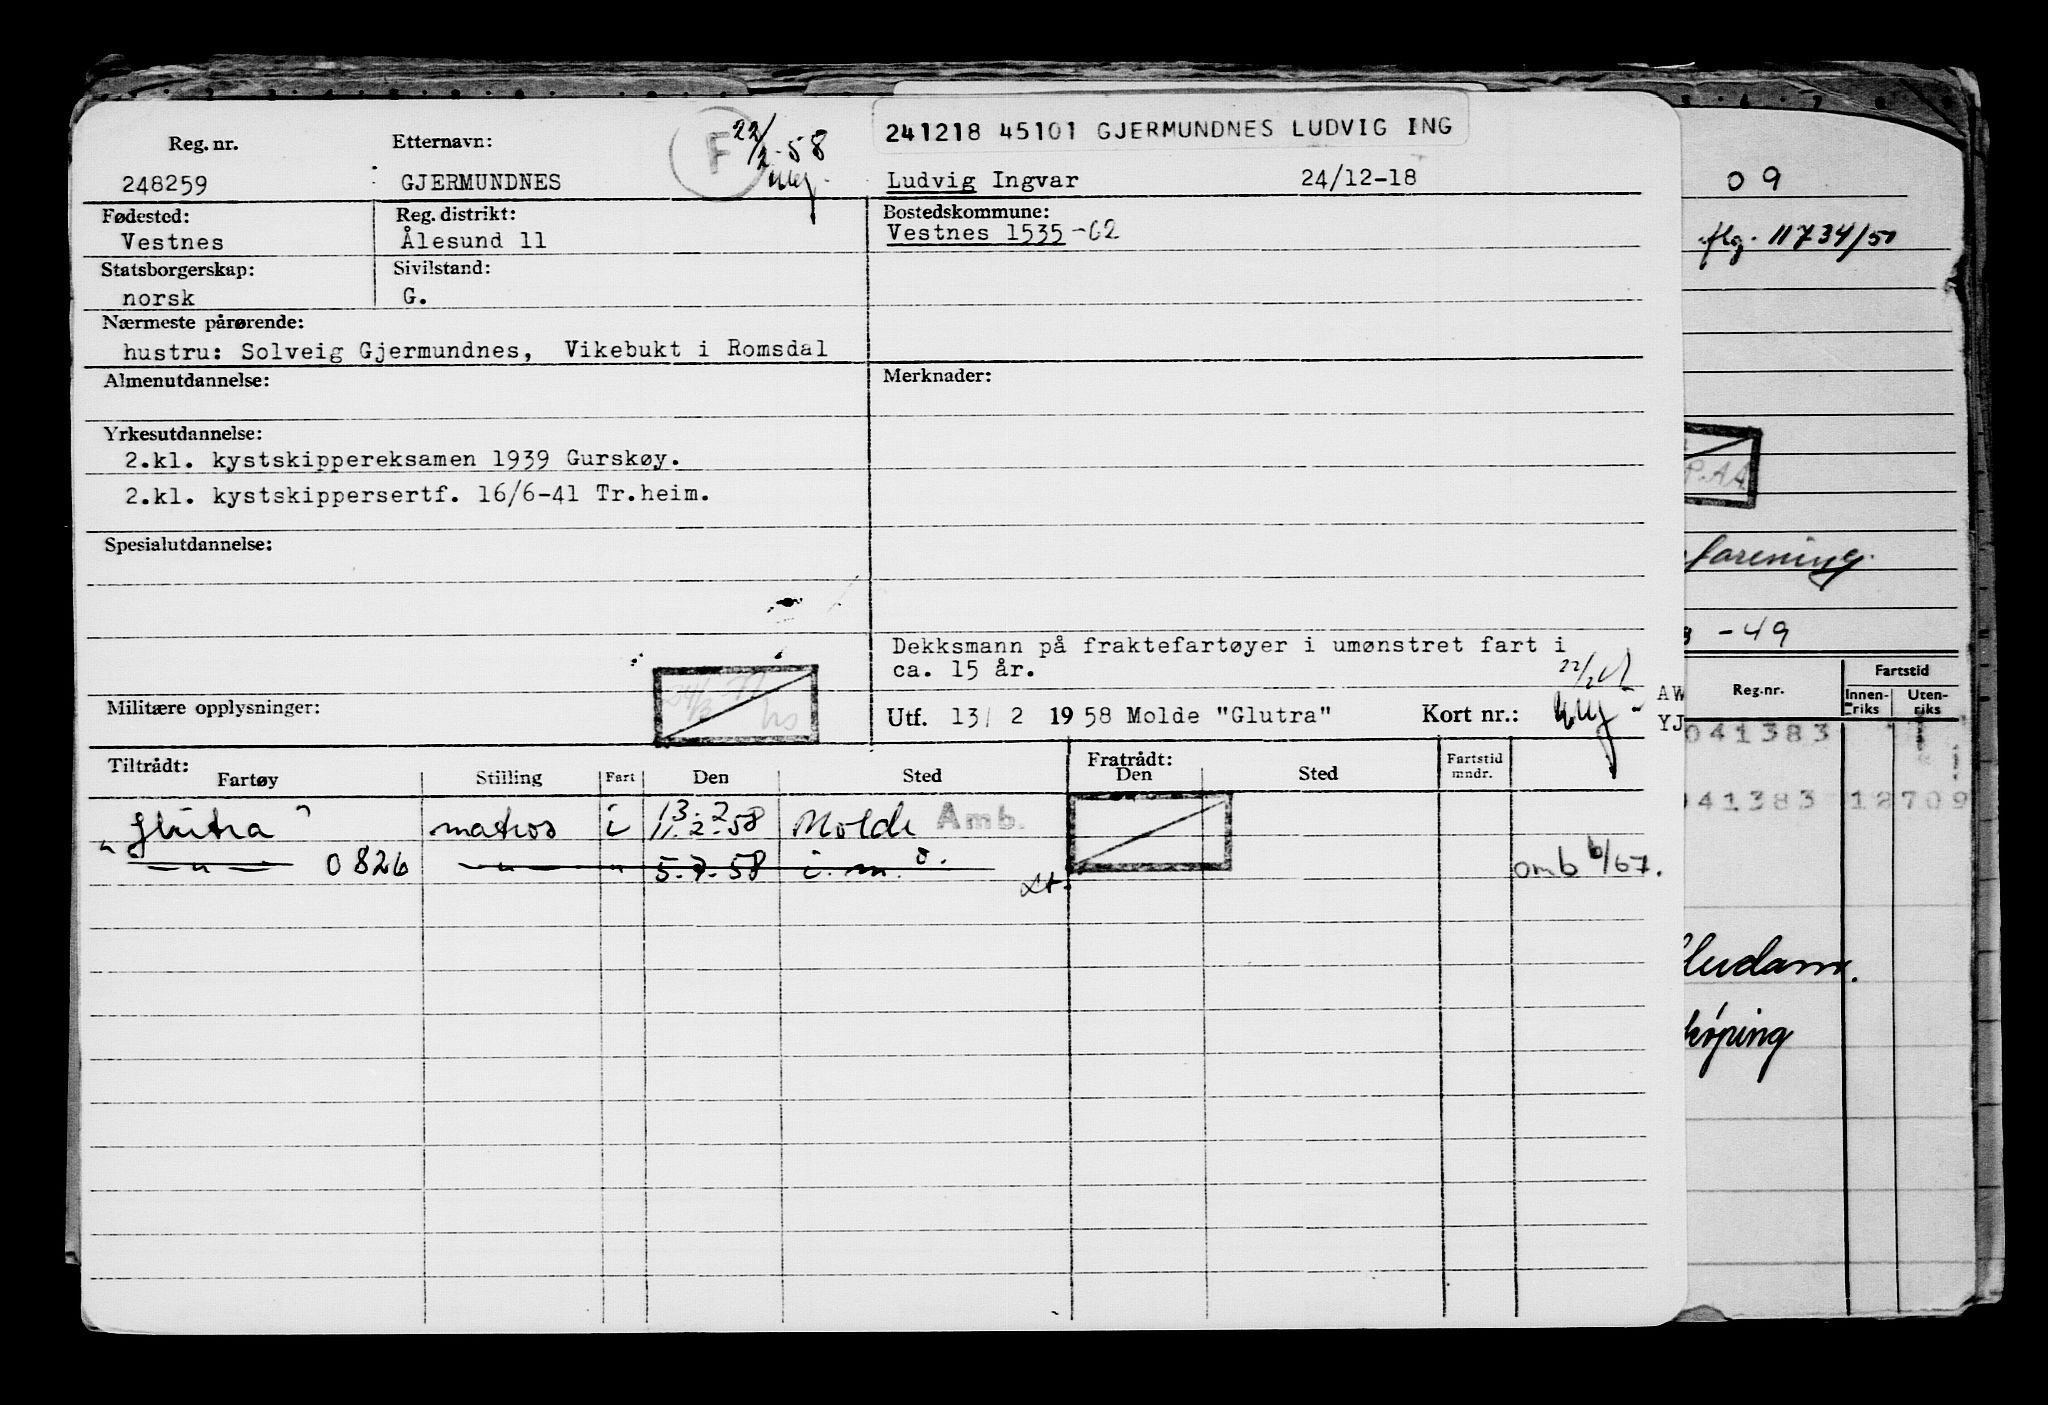 241218 45101 GJERMUNDNES LUDVIG ING
F 22/2-58
Reg. nr. Etternavn:
248259 GJERMUNDNES Ludvig Ingvar 24/12-18
Fødested: Reg. distrikt: Bostedskommune:
Vestnes Ålesund 11 Vestnes 1535-02
Statsborgerskap: Sivilstand:
norsk G.
Nærmeste pårørende:
hustru: Solveig Gjermundnes, Vikebukt i Romsdal
Almenutdannelse: Merknader:
Yrkesutdannelse:
2.kl. kystskippereksamen 1939 Gurskøy.
2.kl. kystskippersertf. 16/6-41 Tr.heim.
Spesialutdannelse:
Dekksmann på fraktefartøyer i umønstret fart i
ca. 15 år.
Militære opplysninger:
Utf. 13/ 2 1958 Molde "Glutra" Kort nr.:
Tiltrådt: Fratrådt:
Fartøy Stilling Fart Den Sted Den Sted Fartstid mndr.
"Glutra" matros i 13.2 11.2-58 Molde Amb.
— " — 0826 — " — " 5.7.58 i.m. omb 6/67.
09
flg. 11734/50
P.A.A.
forening.
-49
Reg.nr. Fartstid
Innenriks Utenriks
AW
YJ
041383
041383 12709
köping